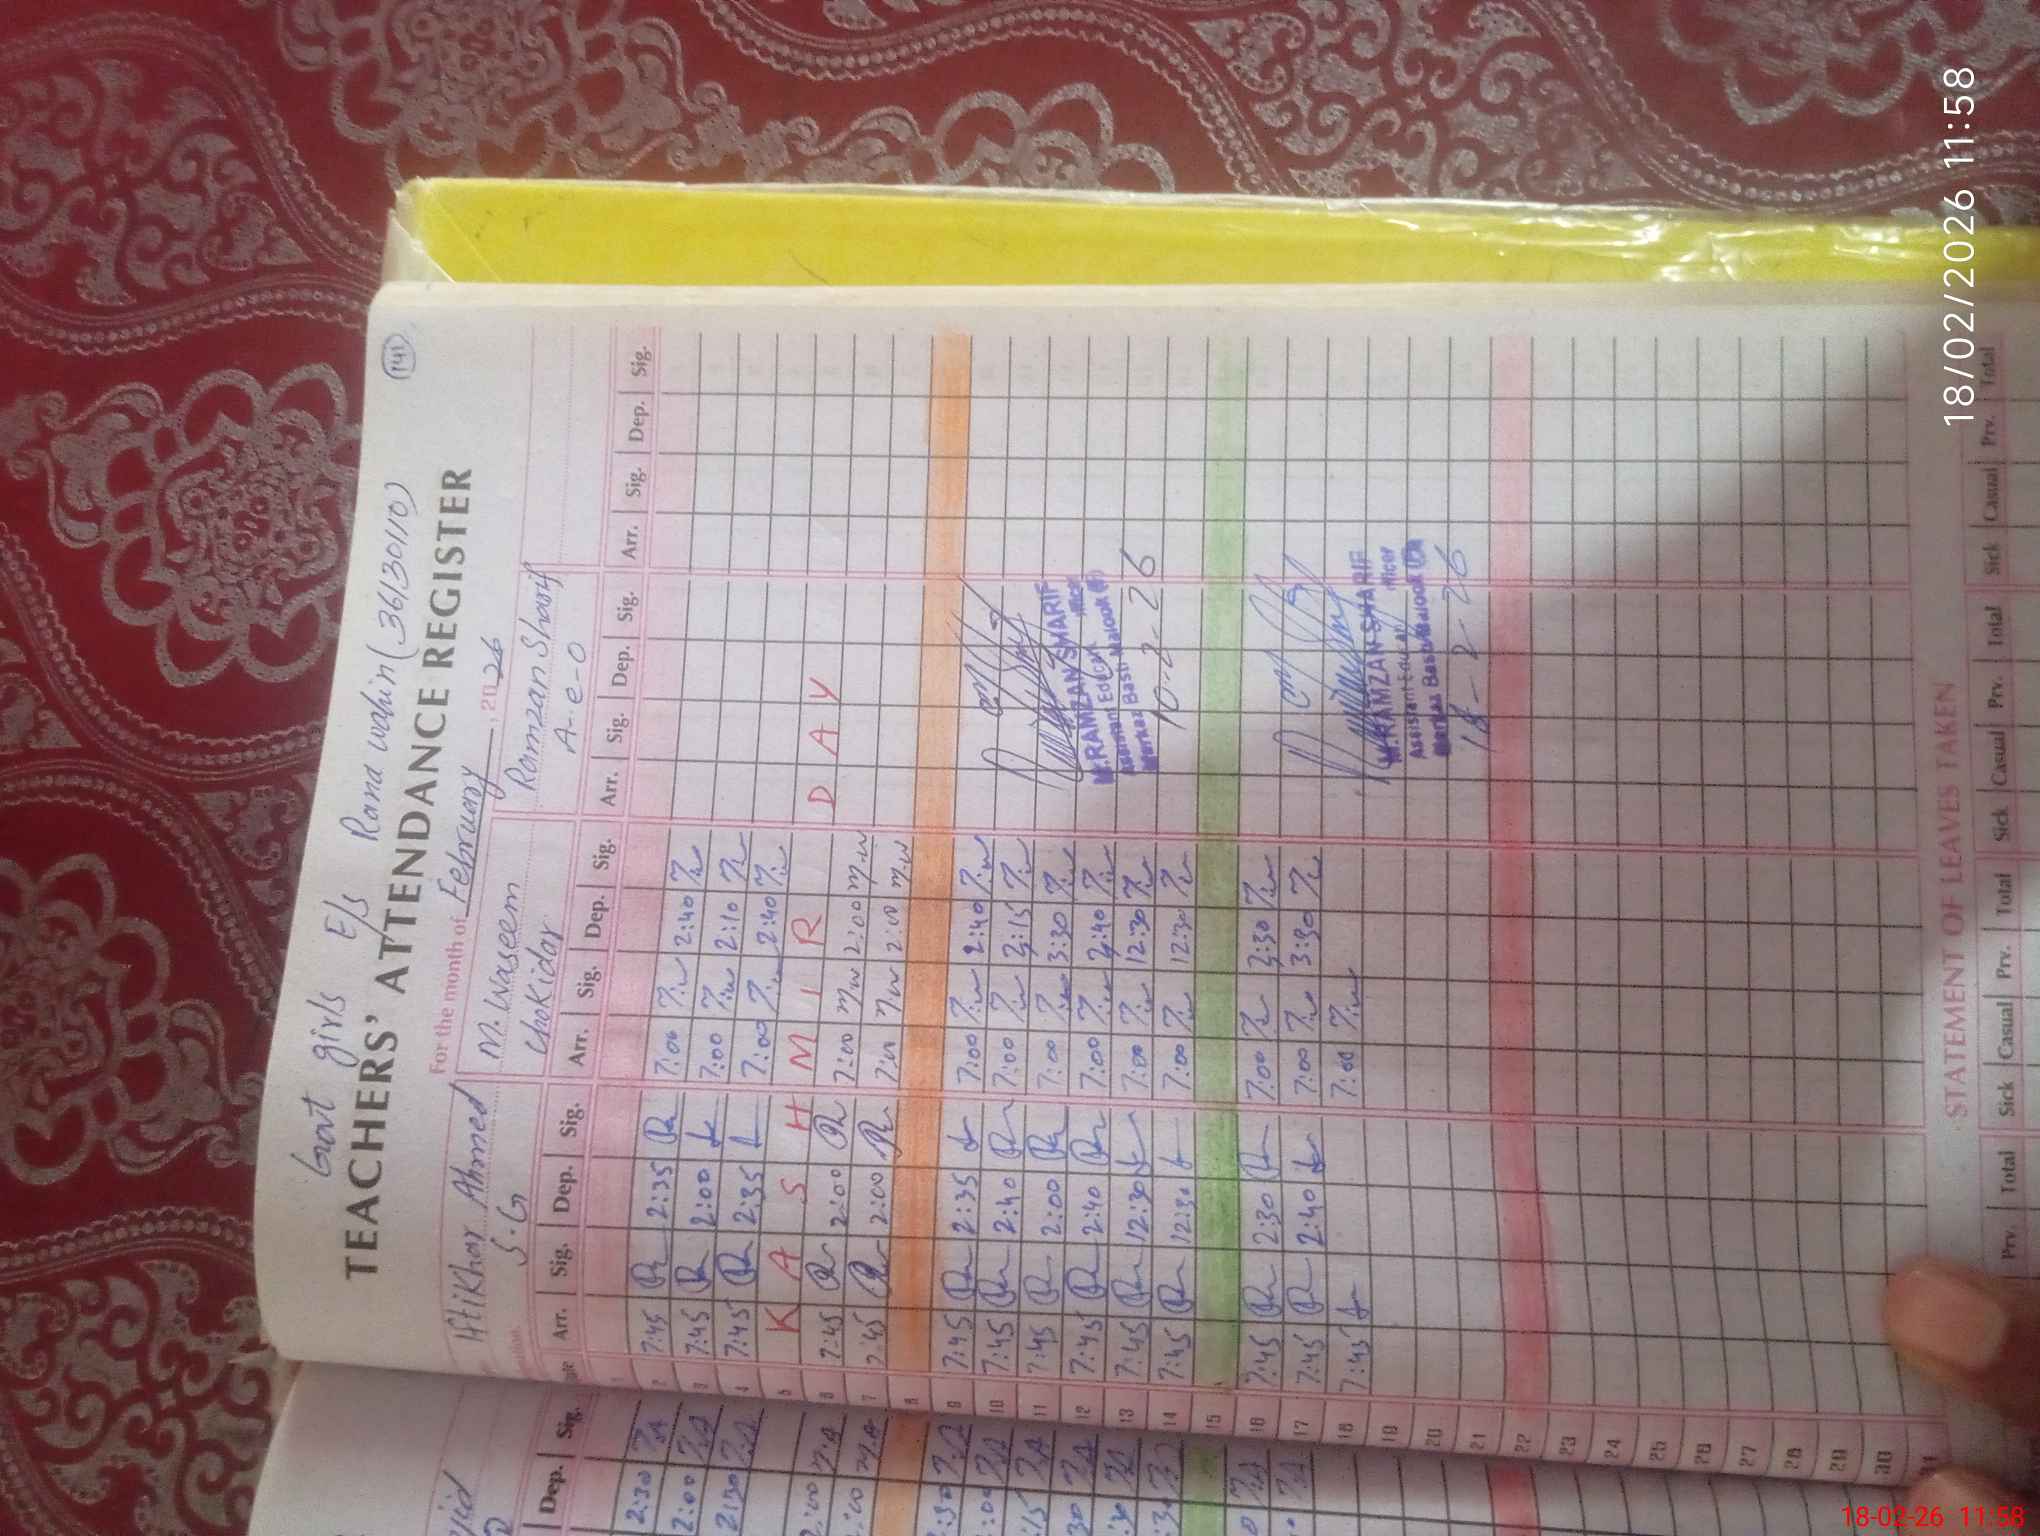 141
Govt girls E/s Rana wahin (36130110)
TEACHERS' ATTENDANCE REGISTER
For the month of February, 2026
Iftikhar Ahmed M. Waseem Ramzan Sharif
S.G Chokidar A-e-o
Arr. Sig. Dep. Sig. Arr. Sig. Dep. Sig. Arr. Sig. Dep. Sig. Arr. Sig. Dep. Sig.
Dep. Sig.
1
2:30 2 7:45 2:35 7:00 2:40
2:00 3 7:45 2:00 7:00 2:10
2:30 4 7:45 2:35 7:00 2:40
5 K A S H M I R D A Y
6 7:45 2:00 7:00 m.w 2:00 m.w
7 7:45 2:00 7:00 m.w 2:00 m.w
8
9 7:45 2:35 7:00 2:40
10 7:45 2:40 7:00 2:15
11 7:45 2:00 7:00 3:30
12 7:45 2:40 7:00 2:40
13 7:45 12:30 7:00 12:30
14 7:45 12:30 7:00 12:30
15
16 7:45 2:30 7:00 2:30
17 7:45 2:40 7:00 3:30
18 7:45 7:00
19
20
21
22
23
24
25
26
27
28
29
30
31
M.RAMZAN SHARIF
Assistant Education
Markaz Basti Malook (M)
10-2-26
M.RAMZAN SHARIF
Assistant Educat
Markaz Basti Malook
18-2-26
STATEMENT OF LEAVES TAKEN
Prv. Total Sick Casual Prv. Total Sick Casual Prv. Total Sick Casual Prv. Total
18/02/2026 11:58
18-02-26 11:58